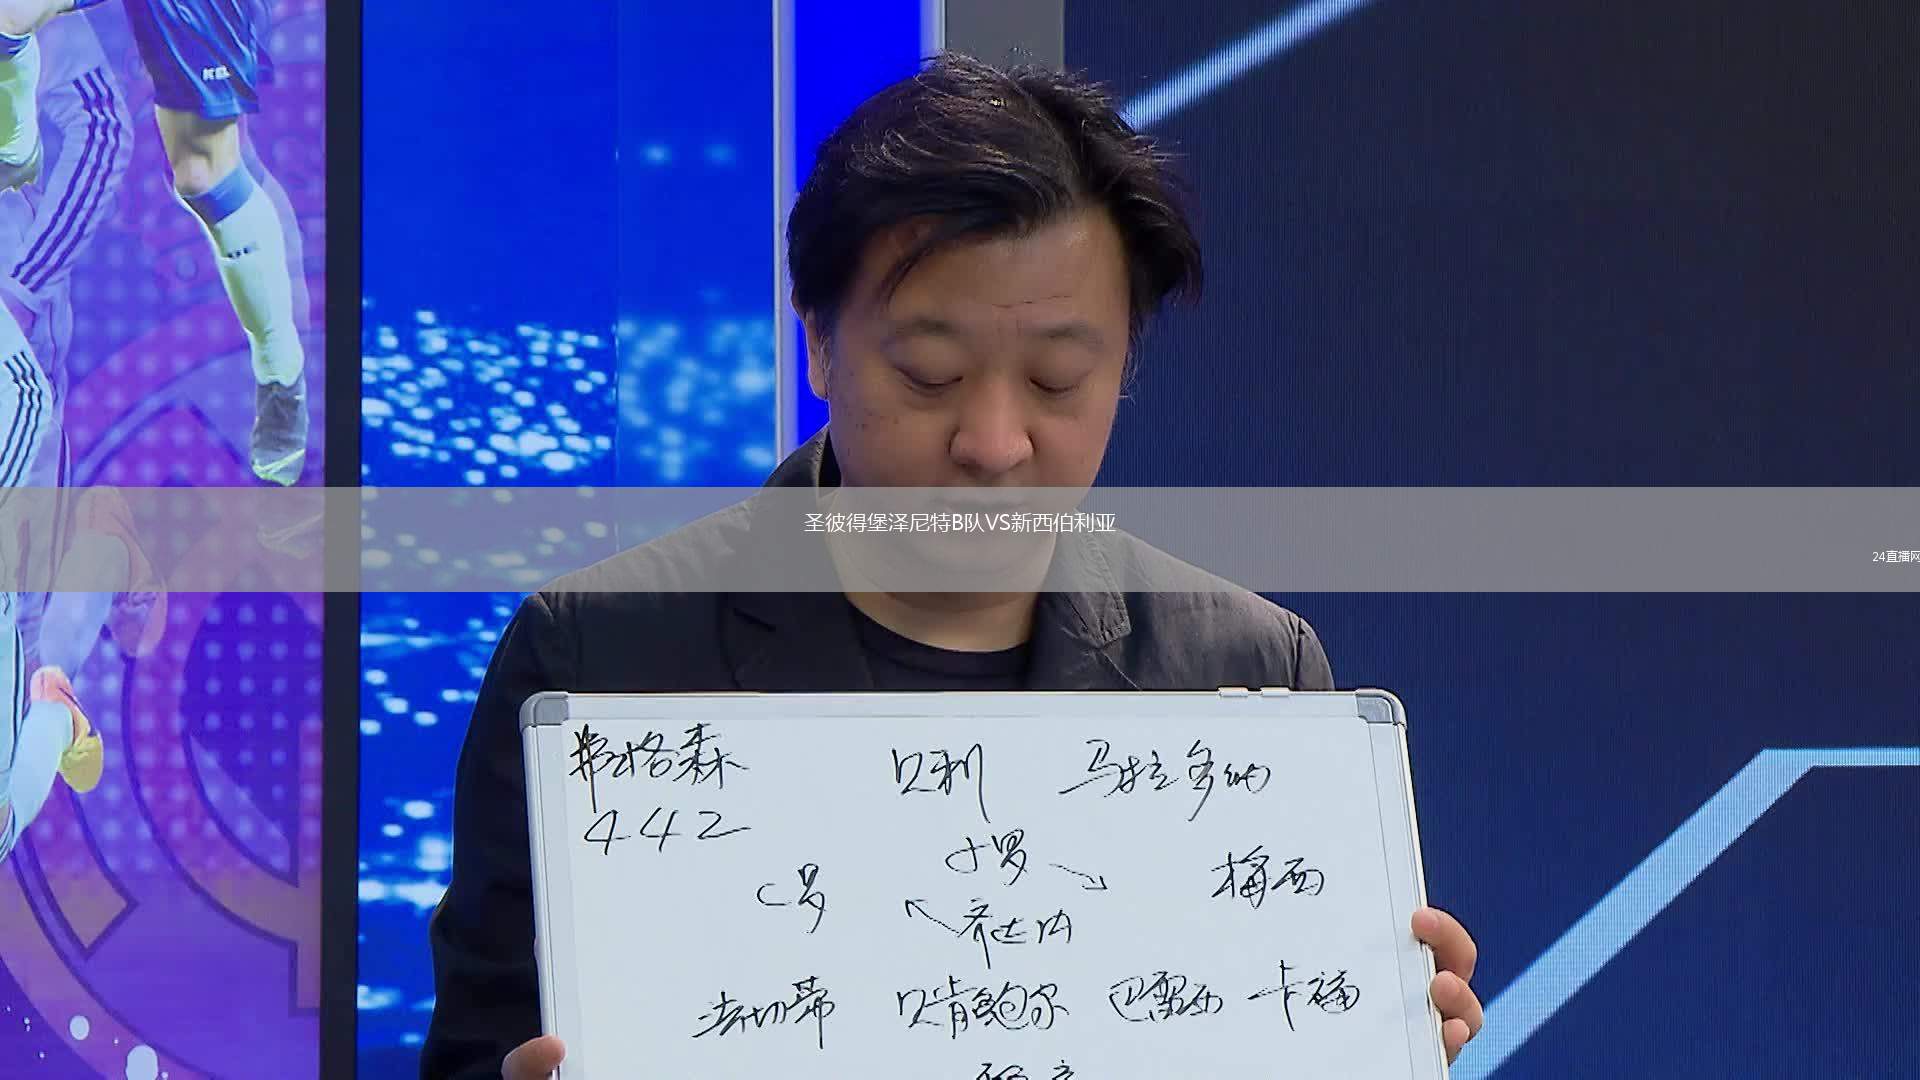 圣彼得堡泽尼特B队VS新西伯利亚
24直播网
弗格森 贝利 马拉多纳
442
小罗
C罗 梅西
齐达内
法切蒂 贝肯鲍尔 巴雷西 卡福